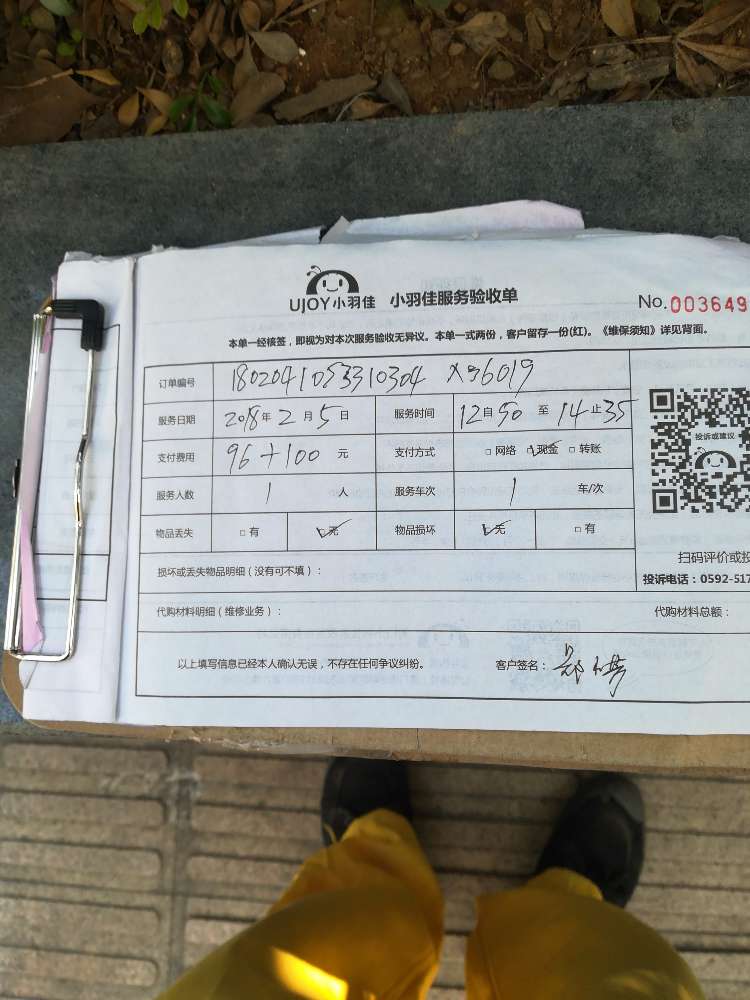 UJOY小羽佳 小羽佳服务验收单 No.003649
本单一经核签，即视为对本次服务验收无异议。本单一式两份，客户留存一份(红)。《维保须知》详见背面。
订单编号 1802041053310304 X96019
服务日期 2018年2月5日 服务时间 12自50至14止35
支付费用 96+100元 支付方式 □网络 ☑现金 □转账
服务人数 1人 服务车次 1 车/次
物品丢失 □有 ☑无 物品损坏 ☑无 □有
投诉或建议
损坏或丢失物品明细（没有可不填）：
扫码评价或投
投诉电话：0592-517
代购材料明细（维修业务）： 代购材料总额：
以上填写信息已经本人确认无误，不存在任何争议纠纷。 客户签名：